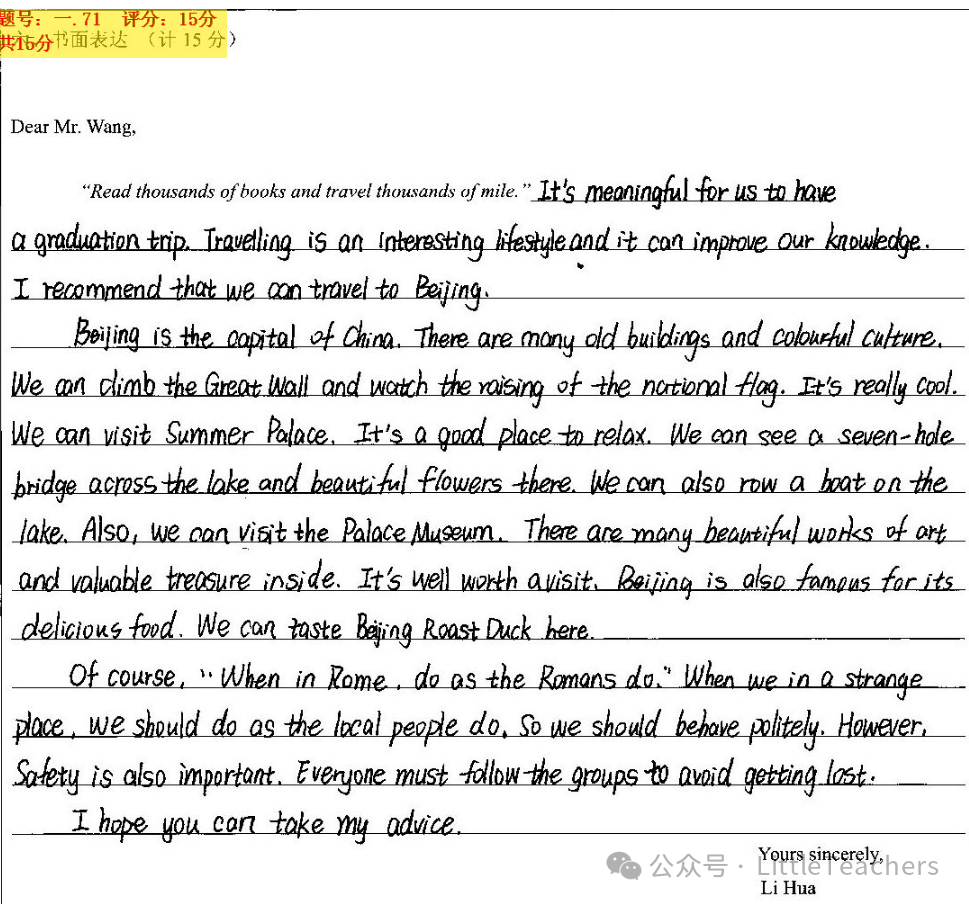 题号：一.71 评分：15分
共15分 书面表达 （计 15 分）
Dear Mr. Wang,
“Read thousands of books and travel thousands of mile.” It's meaningful for us to have
a graduation trip. Travelling is an interesting lifestyle and it can improve our knowledge.
I recommend that we can travel to Beijing.
Beijing is the capital of China. There are many old buildings and colourful culture.
We can climb the Great Wall and watch the raising of the national flag. It's really cool.
We can visit Summer Palace. It's a good place to relax. We can see a seven-hole
bridge across the lake and beautiful flowers there. We can also row a boat on the
lake. Also, we can visit the Palace Museum. There are many beautiful works of art
and valuable treasure inside. It's well worth a visit. Beijing is also famous for its
delicious food. We can taste Beijing Roast Duck here.
Of course, “When in Rome, do as the Romans do.” When we in a strange
place, we should do as the local people do. So we should behave politely. However,
Safety is also important. Everyone must follow the groups to avoid getting lost.
I hope you can take my advice.
Yours sincerely,
公众号 · LittleTeachers
Li Hua